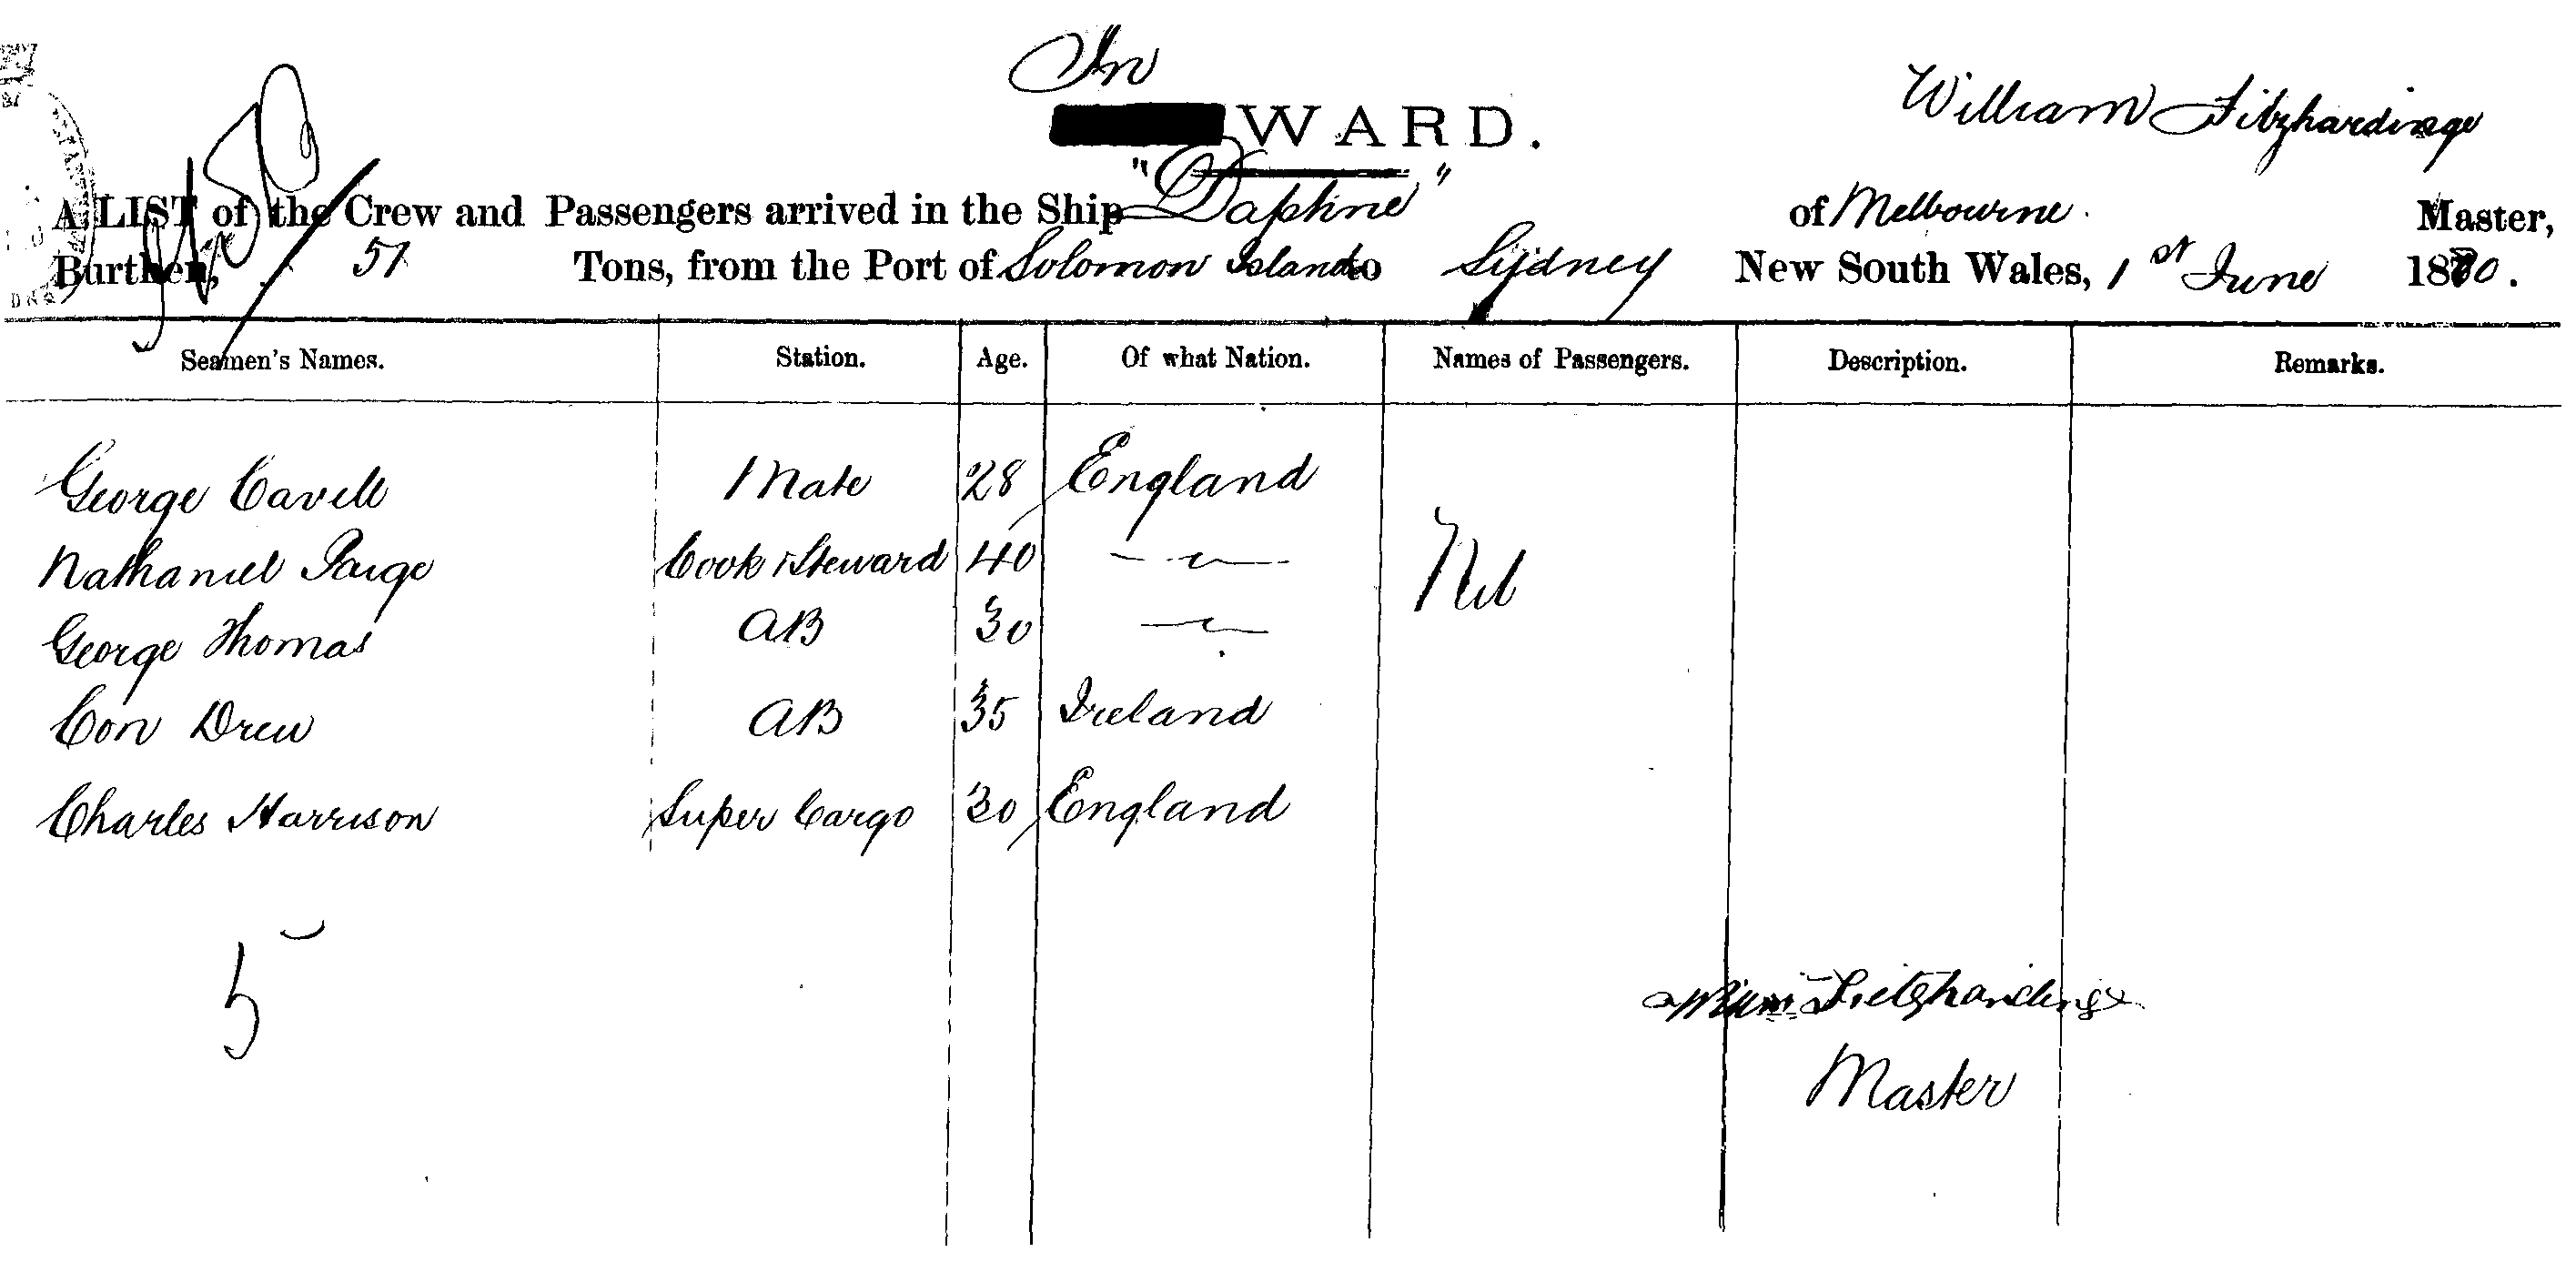 In
WARD.
William Fitzhardinge
A LIST of the Crew and Passengers arrived in the Ship "Daphne" of Melbourne. Master,
Burthen, 51 Tons, from the Port of Solomon Islands to Sydney New South Wales, 1st June 1870.
Seamen's Names. Station. Age. Of what Nation. Names of Passengers. Description. Remarks.
George Cavell Mate 28 England
Nathaniel Paige Cook & Steward 40 — " — Nil
George Thomas AB 30 — " —
Con Drew AB 35 Ireland
Charles Harrison Super Cargo 30 England
5
Fietzhardinge
Master